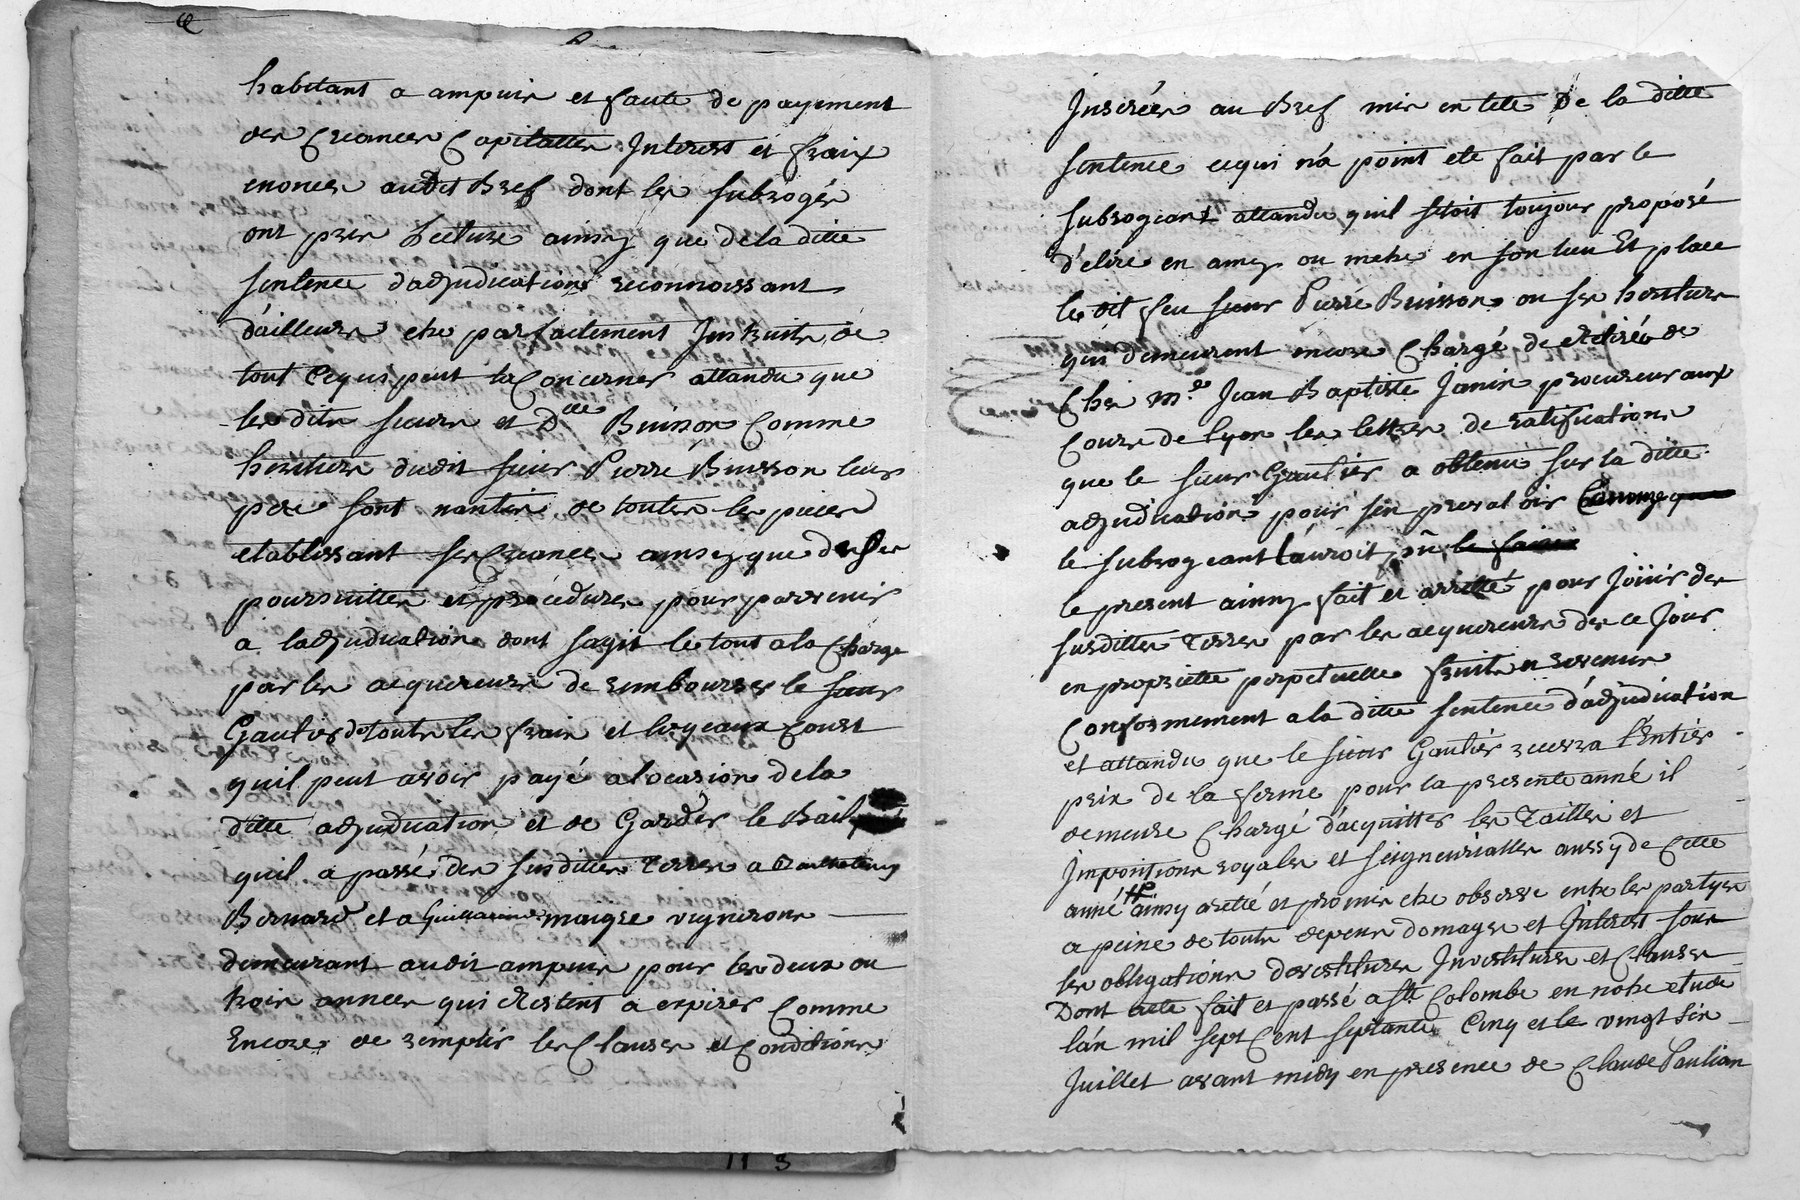 habitant a ampuis et faute de payement
des Creances Capitalles Interest et fraix
enoncés audit Bref dont les subrogés
ont pris Lecture ainsy que de la ditte
sentence d'adjudication reconnoissant
d'ailleurs etre parfaitement Instruits de
tout Cequi peut la Concerner attandu que
les dits sieurs et Dlle Buisson Comme
heritiers dudit sieur Pierre Buisson leur
pere sont nantis de toutes les pieces
etablissant ses Creances ainsy que de ses
poursuittes et procédures pour parvenir
a ladjudication dont sagit le tout a la Charge
par les acquereurs de rembourser le sieur
Gautier de touts les frais et loyeaux Coust
quil peut avoir payé a locasion de la
ditte adjudication et de Garder le Bail
quil a passé des susdittes Terres a
Bernard et a Guillaume maigre vignerons
demeurant audit ampuis pour les deux ou
trois années qui Restent a expirer Comme
Encore de remplir les Clauses et Conditions
Inserées au Bref mis en tete De la ditte
sentence cequi n'a point eté fait par le
subrogeant attandu quil setoit toujour proposé
d'elire en amy ou metre en son lieu Et place
le dit feu sieur Pierre Buisson ou ses heritiers
qui demeurent encore Chargé de retirer de
Ches Me Jean Baptiste Janin procureur aux
Cours de lyon les lettres de ratifications
que le sieur Gautier a obtenu sur la ditte
adjudication pour sen prevaloir Comme que
le subrogeant l'auroit pû le faire
le present ainsy fait et arretté pour Joüir des
susdittes Terres par les acquereurs des ce Jour
en proprietté perpetuelle fruits et revenus
Conformement a la ditte sentence d'adjudication
et attandu que le sieur Gautier recevra l'Entier
prix de la ferme pour la presente anné il
demeure Chargé d'acquitter les Tailles et
Impositions royales et seigneurialles aussy de Cette
anné ainsy aretté et promis etre observé entre les partyes
a peine de touts depens domages et Interest sous
les obligations Investitures et Clauses
Dont acte fait et passé a Ste Colombe en notre etude
lán mil sept Cent septante Cinq et le vingt six
Juillet avant midy en presence de Claude Paulian